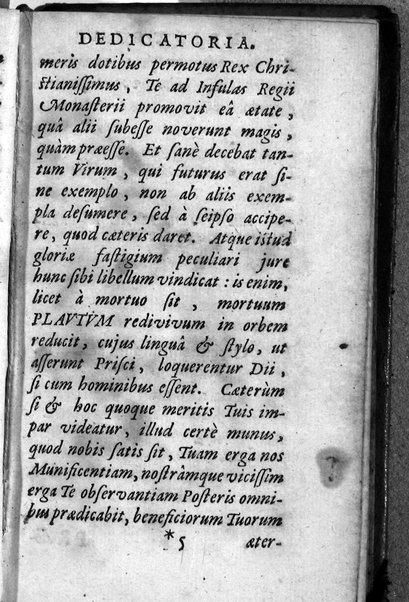 DEDICATORIA.
meris dotibus permotus Rex Chri-
ſtianiſſimus, Te ad Infulas Regii
Monaſterii promovit eâ ætate,
quâ alii ſubeſſe noverunt magis,
quàm præeſſe. Et ſanè decebat tan-
tum Virum, qui futurus erat ſi-
ne exemplo, non ab aliis exem-
pla deſumere, ſed à ſeipſo accipe-
re, quod cæteris daret. Atque iſtud
gloriæ faſtigium peculiari jure
hunc ſibi libellum vindicat: is enim,
licet à mortuo ſit, mortuum
PLAVTVM redivivum in orbem
reducit, cujus linguâ & ſtylo, ut
aſſerunt Priſci, loquerentur Dii,
ſi cum hominibus eſſent. Cæterùm
ſi & hoc quoque meritis Tuis im-
par videatur, illud certè munus,
quod nobis ſatis ſit, Tuam erga nos
Munificentiam, noſtràmque viciſſim
erga Te obſervantiam Poſteris omni-
bus prædicabit, beneficiorum Tuorum
*5 æter-